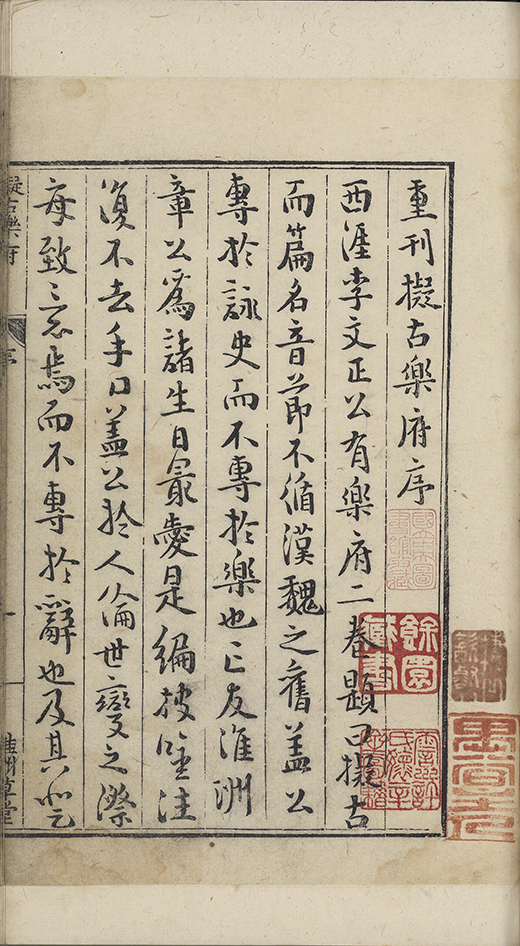 重刊擬古樂府序
西涯李文正公有樂府二卷題曰擬古
而篇名音節不循漢魏之舊盖公
專於詠史而不專於樂也亡友淮洲
章公爲諸生日最愛是編披唫注
復不去手口盖公於人倫世變之際
每致意焉而不專於辭也及其登
擬古樂府
序
一
草堂
餘園藏書